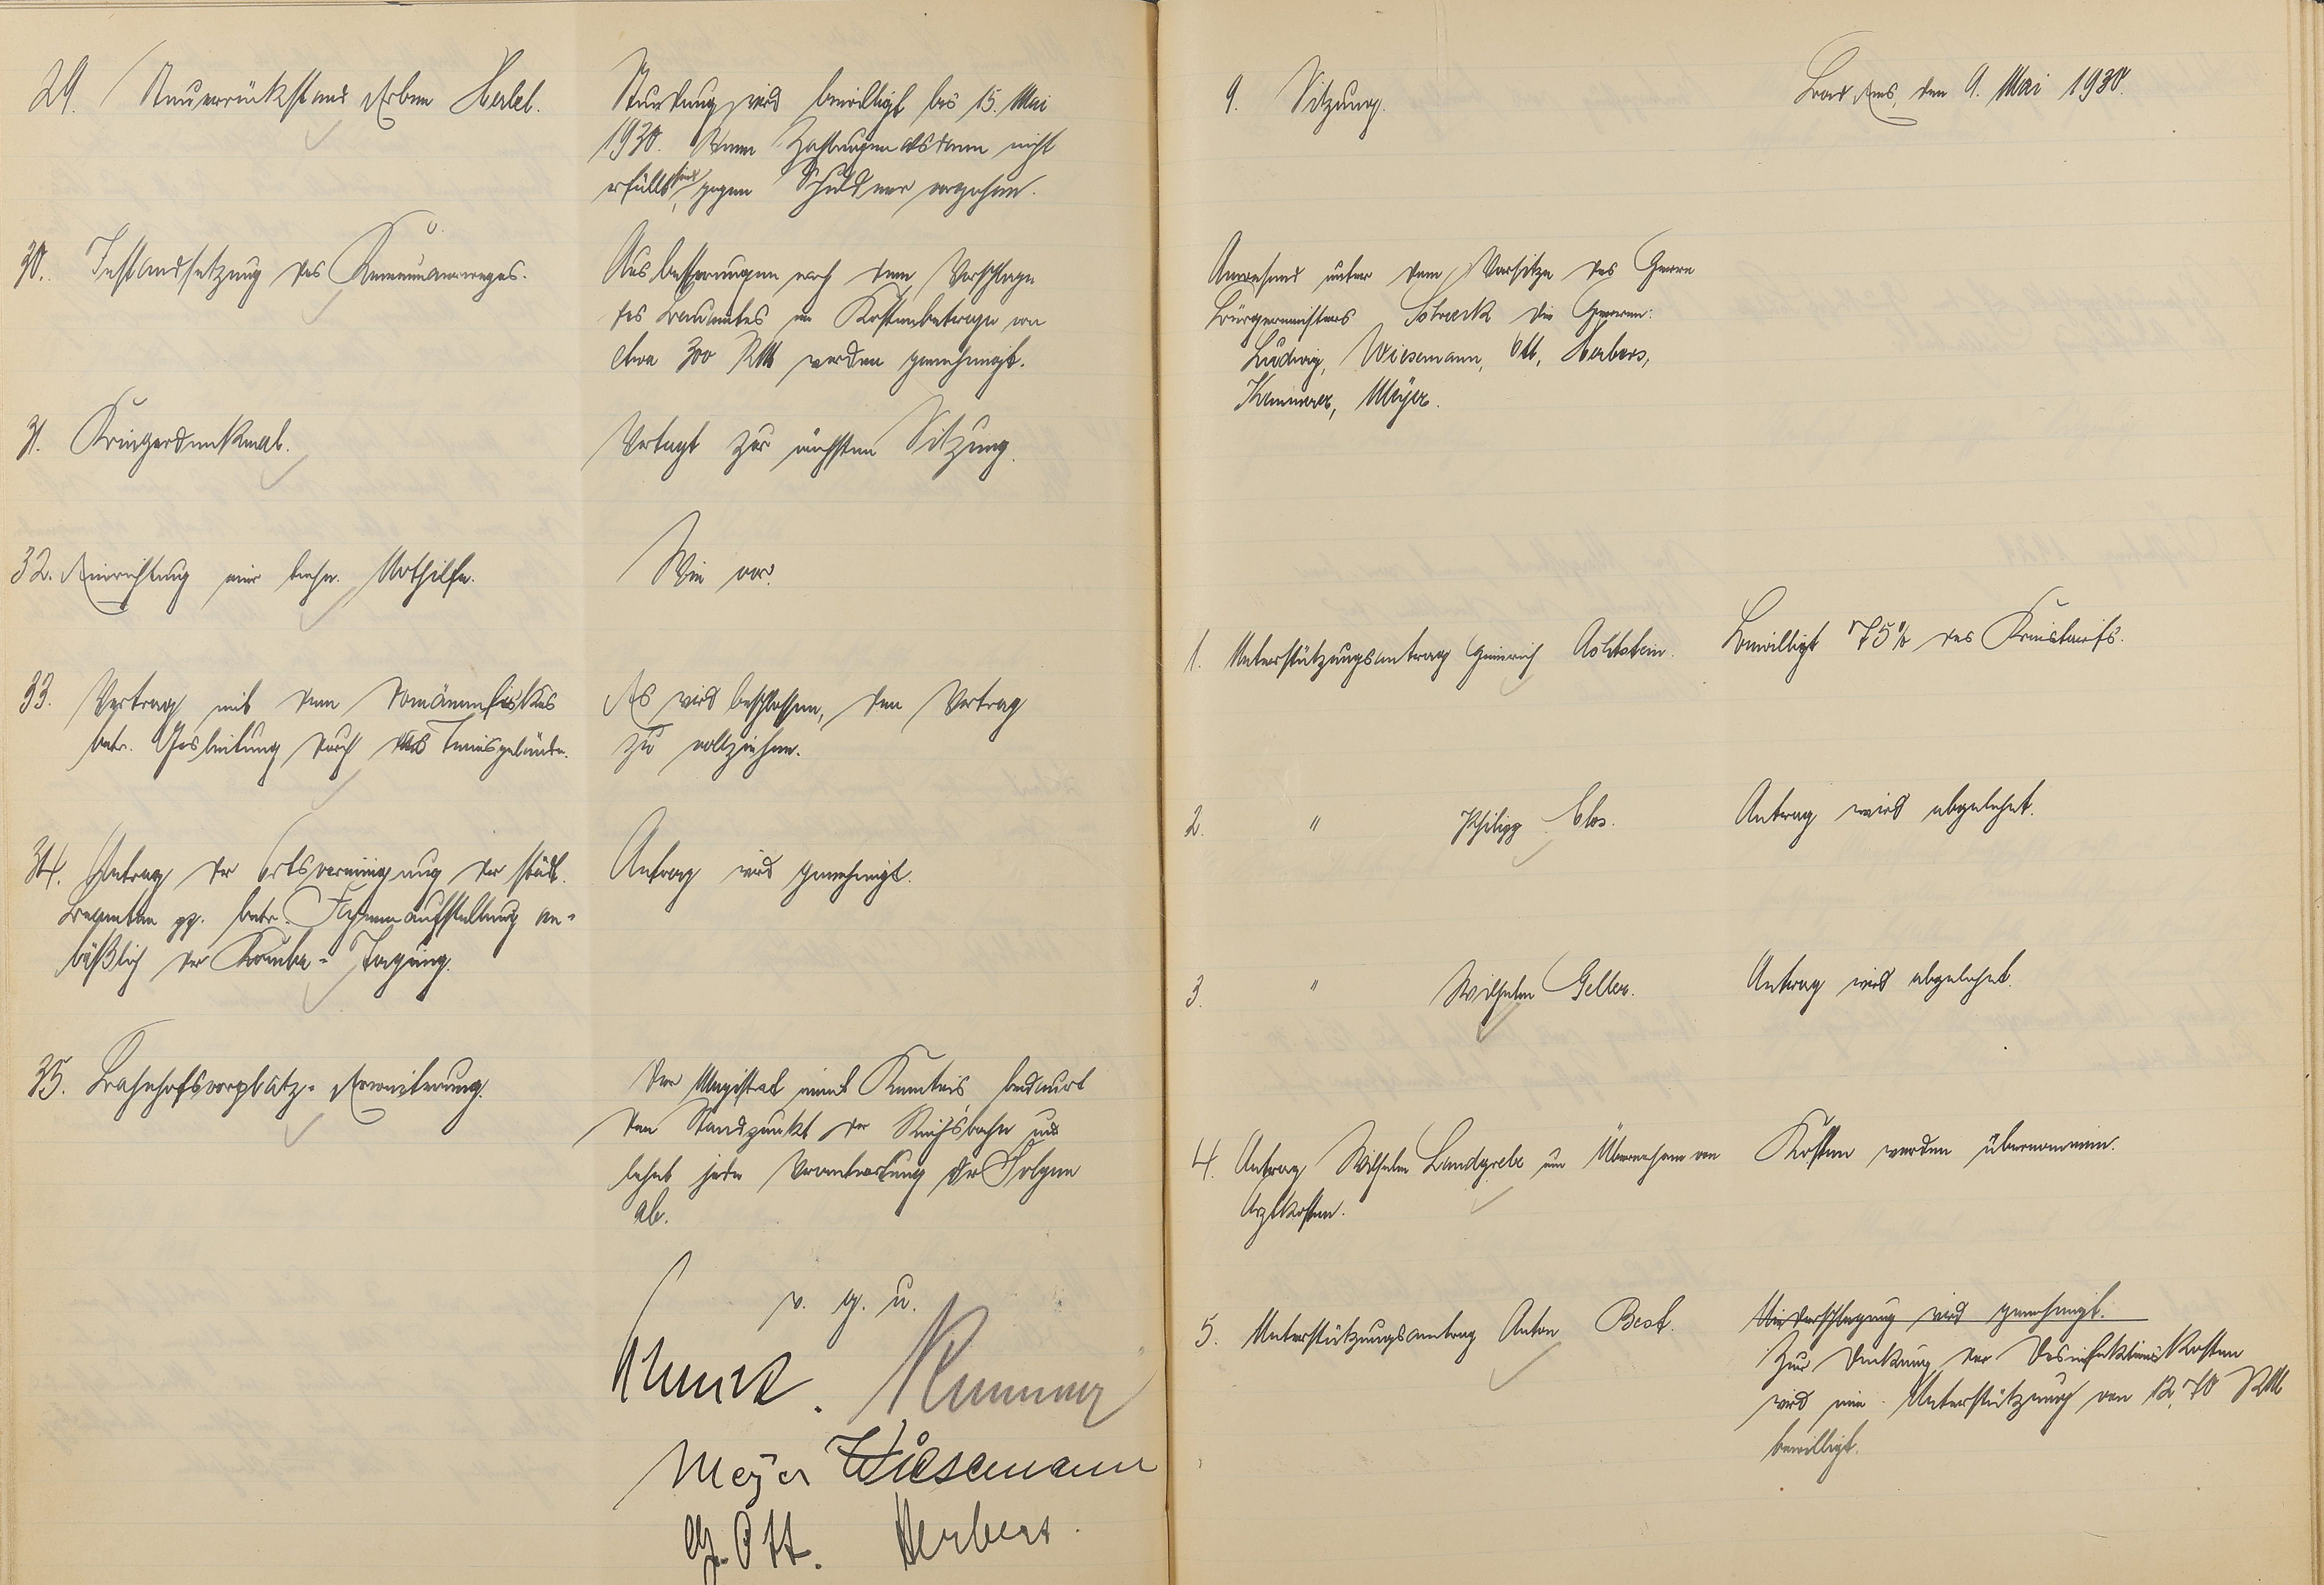 29. Steuerrückstand Erben Herbel.
Stundung wird bewilligt bis 15. Mai
1930. Wenn Zahlungen alsdann nicht
erfüllt sind, gegen Schuldner vorgehen.
30. Instandsetzung des Kemmenauerweges.
Ausbesserungen nach dem Vorschlage
des Bauamtes im Kostenbetrage von
etwa 300 RM werden genehmigt.
31. Kriegerdenkmal.
Vertagt zur nächsten Sitzung.
32. Einrichtung einer techn. Nothilfe.
Wie vor.
33. Vertrag mit dem Domänenfiskus
betr. Gasleitung durch das Tennisgelände.
Es wird beschlossen, den Vertrag
zu vollziehen.
34. Antrag der Ortsvereinigung der städt.
Beamten pp. betr. Fahnenaufstellung an-
läßlich der Komba-Tagung.
Antrag wird genehmigt.
35. Bahnhofsvorplatz-Erweiterung.
Der Magistrat nimmt Kenntnis, bedauert
den Standpunkt der Reichsbahn und
lehnt jede Verantwortung der Folgen
ab.
v. g. u.
Kummer
Meyer Wiesemann
G. Ott. Herbers.
9. Sitzung.
Bad Ems, den 9. Mai 1930.
Anwesend unter dem Vorsitze des Herrn
Bürgermeisters die Herren:
Ludwig, Wiesemann, Ott, Herbers,
Kummer, Meyer.
1. Unterstützungsantrag Heinrich
Bewilligt 75% des Kreistarifs.
2. " Philipp Clos.
Antrag wird abgelehnt.
3. " Wilhelm Geller.
Antrag wird abgelehnt.
4. Antrag Wilhelm Landgrebe um Übernahme von
Arztkosten.
Kosten werden übernommen.
5. Unterstützungsantrag Anton Best.
Niederschlagung wird genehmigt.
Zur Deckung der Desinfektionskosten
wird eine Unterstützung von 12,70 RM
bewilligt.